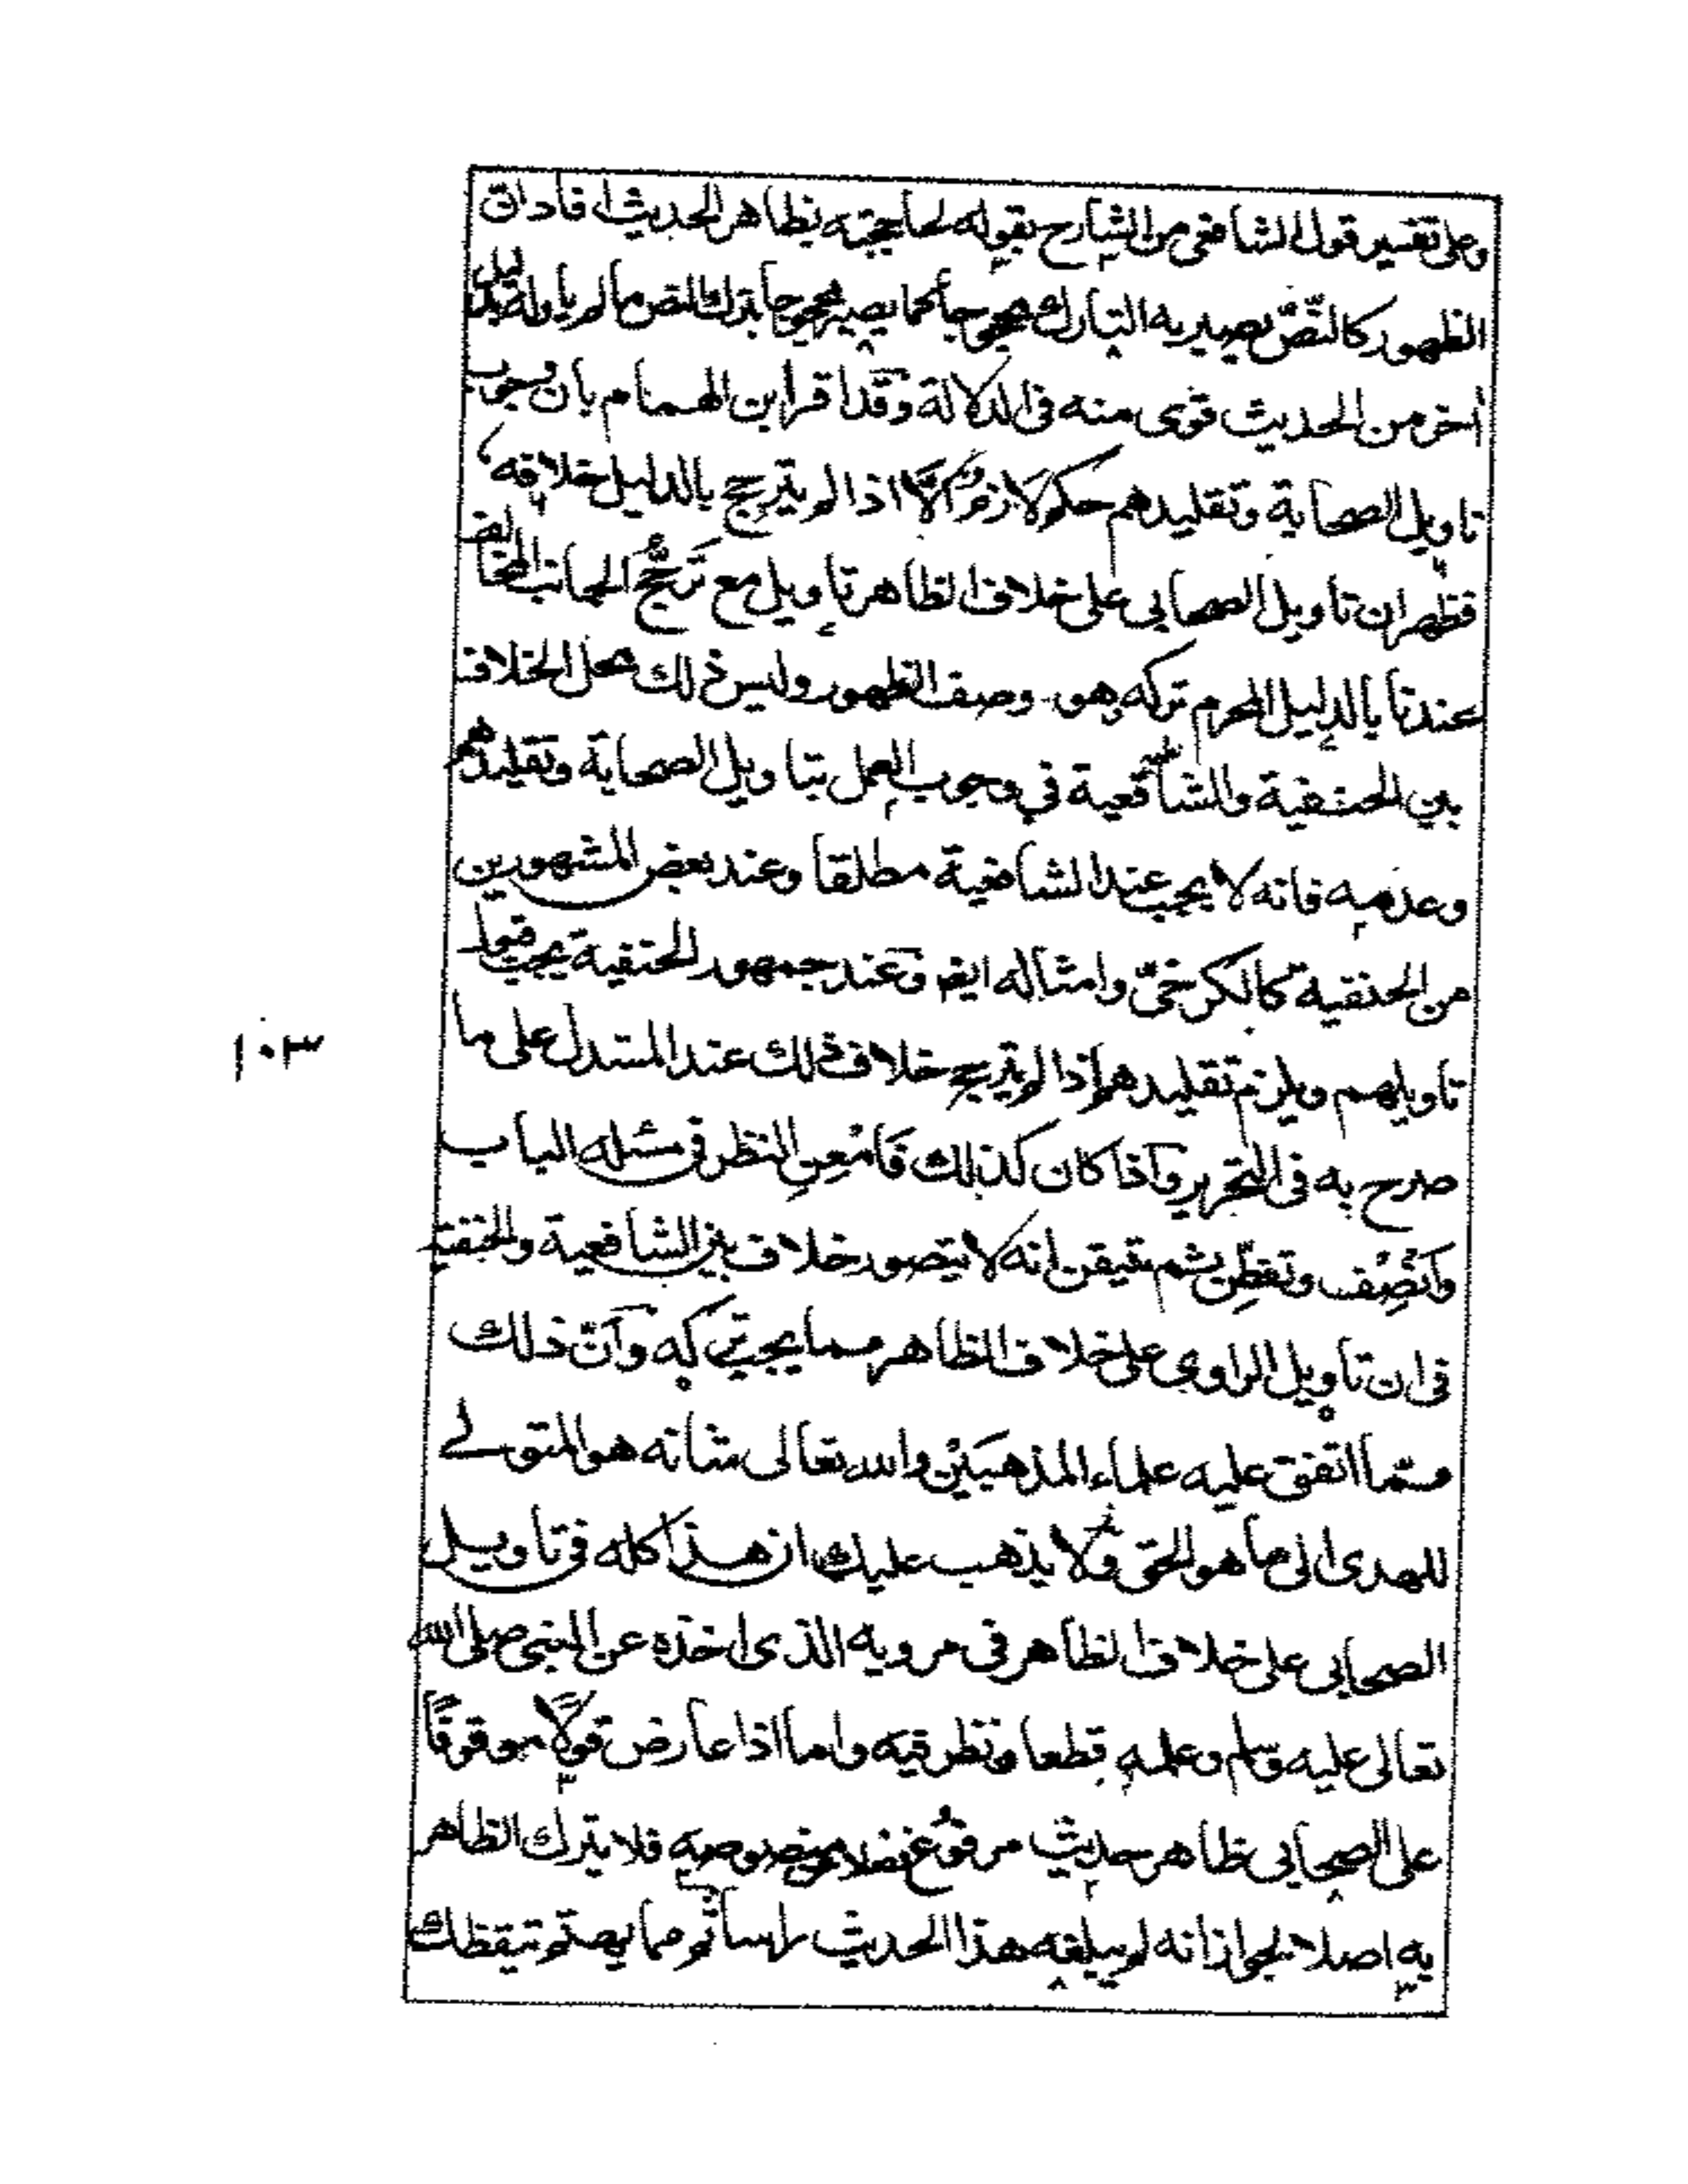 وعلى تفسير قول الشافعى من الشارح بقوله لحاججته بظاهر الحديث افاد ان
الظهور كالنّصّ يصير به التارك محجوجا كما يصير محجوجا بترك النص ما لم ياوله بدليل
أخر من الحديث قوى منه فى الدلالة وقد اقر ابن الهمام بان وجوب
تاويل الصحابة وتقليدهم حكم لازم كلّا اذا لم يترجح بالدليل خلافه
فظهر ان تاويل الصحابى على خلاف الظاهر تاويل مع ترجّح الجانب المخالف
عندنا بالدليل المحرم تركه وهو وصف الظهور وليس ذلك محل الخلاف
بين الحنفية والشافعية في وجوب العمل بتاويل الصحابة وتقليدهم
وعدمه فانه لا يجب عند الشافعية مطلقا وعند بعض المشهورين
من الحنفية كالكرخىّ وامثاله ايضا وعند جمهور الحنفية يجب قبول
تاويلهم ويلزم تقليدهم اذا لم يترجح خلاف ذلك عند المستدل على ما
صرح به فى التحرير واذا كان كذلك فَامْعِنِ النظر فى مسئله الباب
وَانْصِفْ وتفطّن ثم تيقن انه لا يتصور خلاف بين الشافعية والحنفية
فى ان تاويل الراوى على خلاف الظاهر مما يجب تركه وانّ ذلك
مـمّا اتفق عليه علماء المذهبَيْن والله تعالى شانه هو المتولے
للهدى الى ما هو الحق ولا يذهب عليك ان هذا كله فى تاويل
الصحابى على خلاف الظاهر فى مرويه الذى اخذه عن النبى صلى الله
تعالى عليه وسلم وعلمه قطعا ونظر فيه واما اذا عارض قولًا موقوفًا
على الصحابى ظاهر حديث مرفوع فضلا عن منصوصه فلا يترك الظاهر
به اصلا لجواز انه لم يبلغه هذا الحديث راسا ثم مما يهتم تيقظك
١٠٣